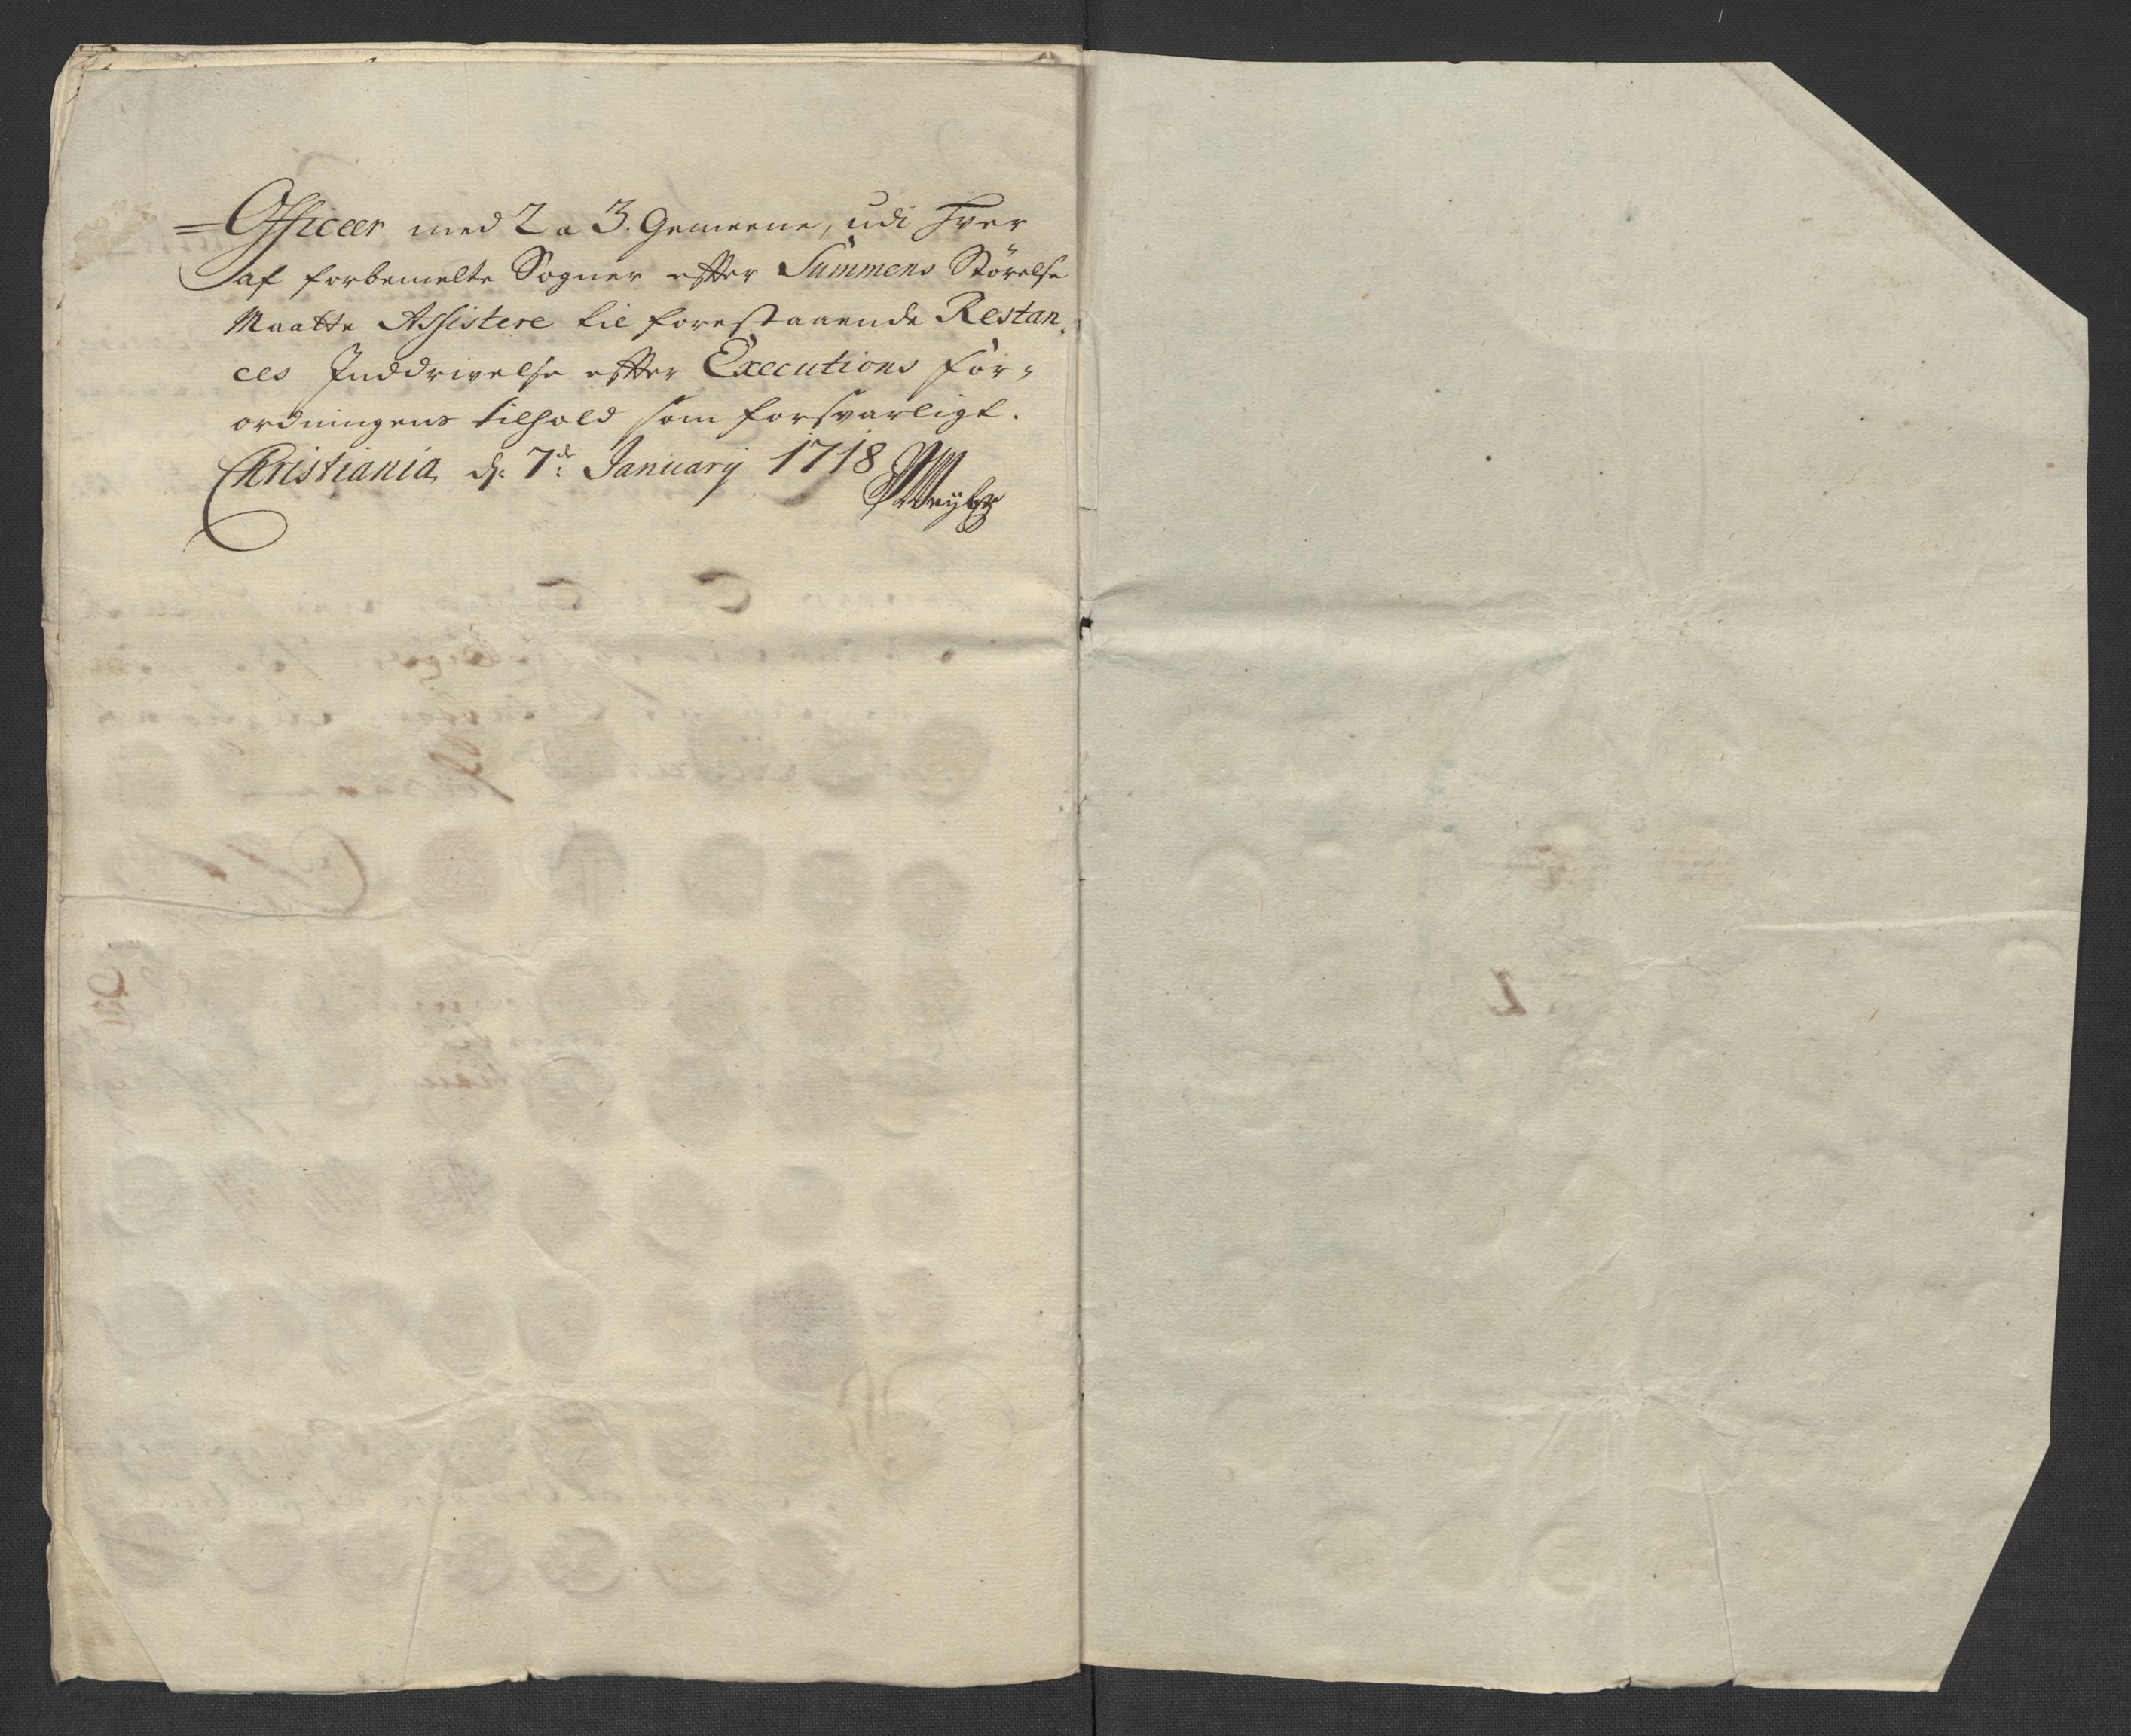 =Officeer med 2 a 3. Gemeene, udi hver
af forbemelte Sogner effter Summens Störelse
Maatte Assistere til forestaaende Restan,
ces Inddrivelse effter Executions For,
ordningens tilhold som forsvarligt.
Christiania d: 7de: Januarij 1718